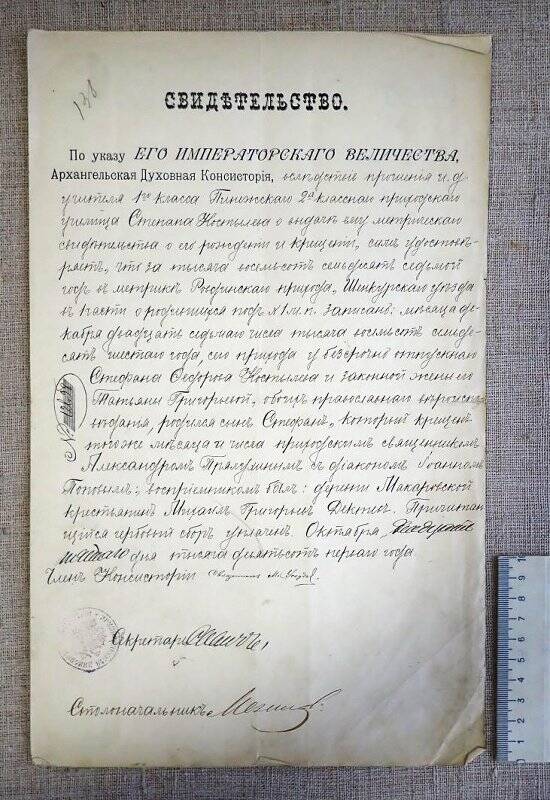 138
СВИДѢТЕЛЬСТВО.
По указу ЕГО ИМПЕРАТОРСКАГО ВЕЛИЧЕСТВА,
Архангельская Духовная Консисторія, вслѣдствіе прошенія и. д.
учителя 1го класса Пинежскаго 2х класснаго приходскаго
училища Степана Костылева о выдачѣ ему метрическаго
свидѣтельства о его рожденіи и крещеніи, симъ удостовѣ-
ряетъ, что за тысяча восемьсотъ семьдесятъ седьмой
годъ въ метрикѣ прихода, Шенкурскаго уѣзда
въ 1 части о родившихся подъ № 1 м. п. записано: мѣсяца де-
кабря двадцать седьмаго числа тысяча восемьсотъ семьде-
сятъ шестаго года, сего прихода у безсрочно отпускнаго
Стефана Ѳедорова Костылева и законной жены его
Татьяны Григорьевой, обоихъ православнаго вѣроиспо-
вѣданія, родился сынъ Стефанъ, который крещенъ
того же мѣсяца и числа приходскимъ священникомъ
Александромъ съ діакономъ Іоанномъ
Поповымъ; воспріемникомъ былъ: деревни Макаровской
крестьянинъ Михаилъ Григорьевъ. Причитаю-
щійся гербовый сборъ уплаченъ. Октября
дня тысяча девятьсотъ перваго года
Членъ Консисторіи
Секретарь
Столоначальникъ
№
1 2 3 4 5 6 7 8 9